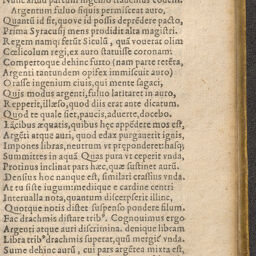 Argentum fuluo siquis permisceat auro,
Quantũ id sit, quove id possis deprẽdere pacto,
Prima Syracusij mens prodidit alta magistri.
Regem namq; ferũt Siculũ, quã vouerat olim
Cœlicolum regi, ex auro statuisse coronam.
Compertoque dehinc furto (nam parte retẽta,
Argenti tantundem opifex immiscuit auro)
Orasse ingenium ciuis, qui mente sagaci,
Quis modus argenti, fuluo latitaret in auto,
Repperit, illæso, quod diis erat ante dicatum.
Quod te quale siet, paucis, aduerte, docebo.
Lãcibus æquatis, quibus hęc appẽdere mos est,
Argẽti atque auri, quod edax purgauerit ignis,
Impones libras, neutrum vt pręponderet: hasq;
Summittes in aquã Quas pura vt ceperit vnda,
Protinus inclinat pars hæc, quæ sustinet aurũ.
Densius hoc nanque est, similati crassius vnda.
At tu siste iugum: mediique e cardine centri
Interualla nota, quantum discerpserit illinc,
Quotque notis distet suspenso pondere filum.
Fac drachmis distare tribꝰ. Cognouimus ergo
Argeoti atque auri discrimina. denique libram
Libra tribꝰ drachmis superat, quũ mergitꝰ vnda.
Sume dehinc aurũ, cui pars argẽtea mixta est,